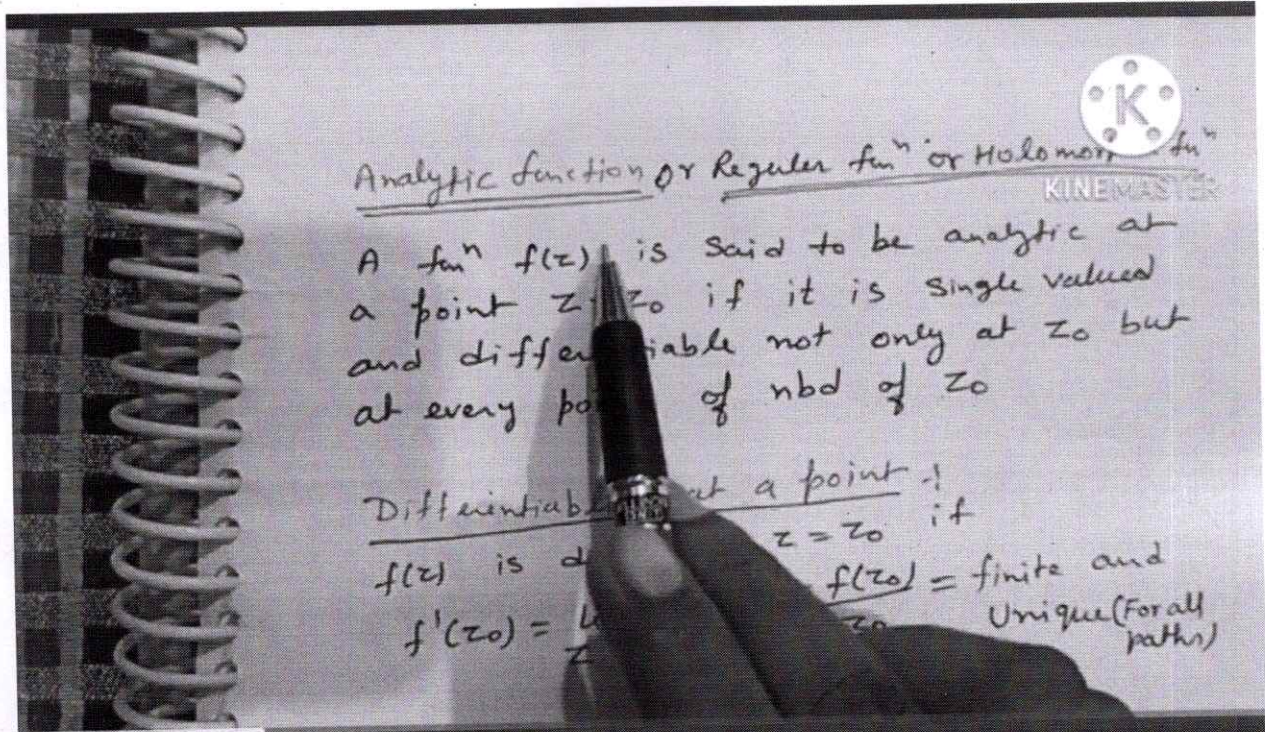 K
KINEMASTER
Analytic function or Regular funⁿ or Holomor funⁿ
A funⁿ f(z) is said to be analytic at
a point z z₀ if it is single valued
and differ iable not only at z₀ but
at every po of nbd of z₀
Differentiab at a point :
f(z) is d z = z₀ if
f'(z₀) = L f(z₀) = finite and
z z₀ Unique (For all
paths)